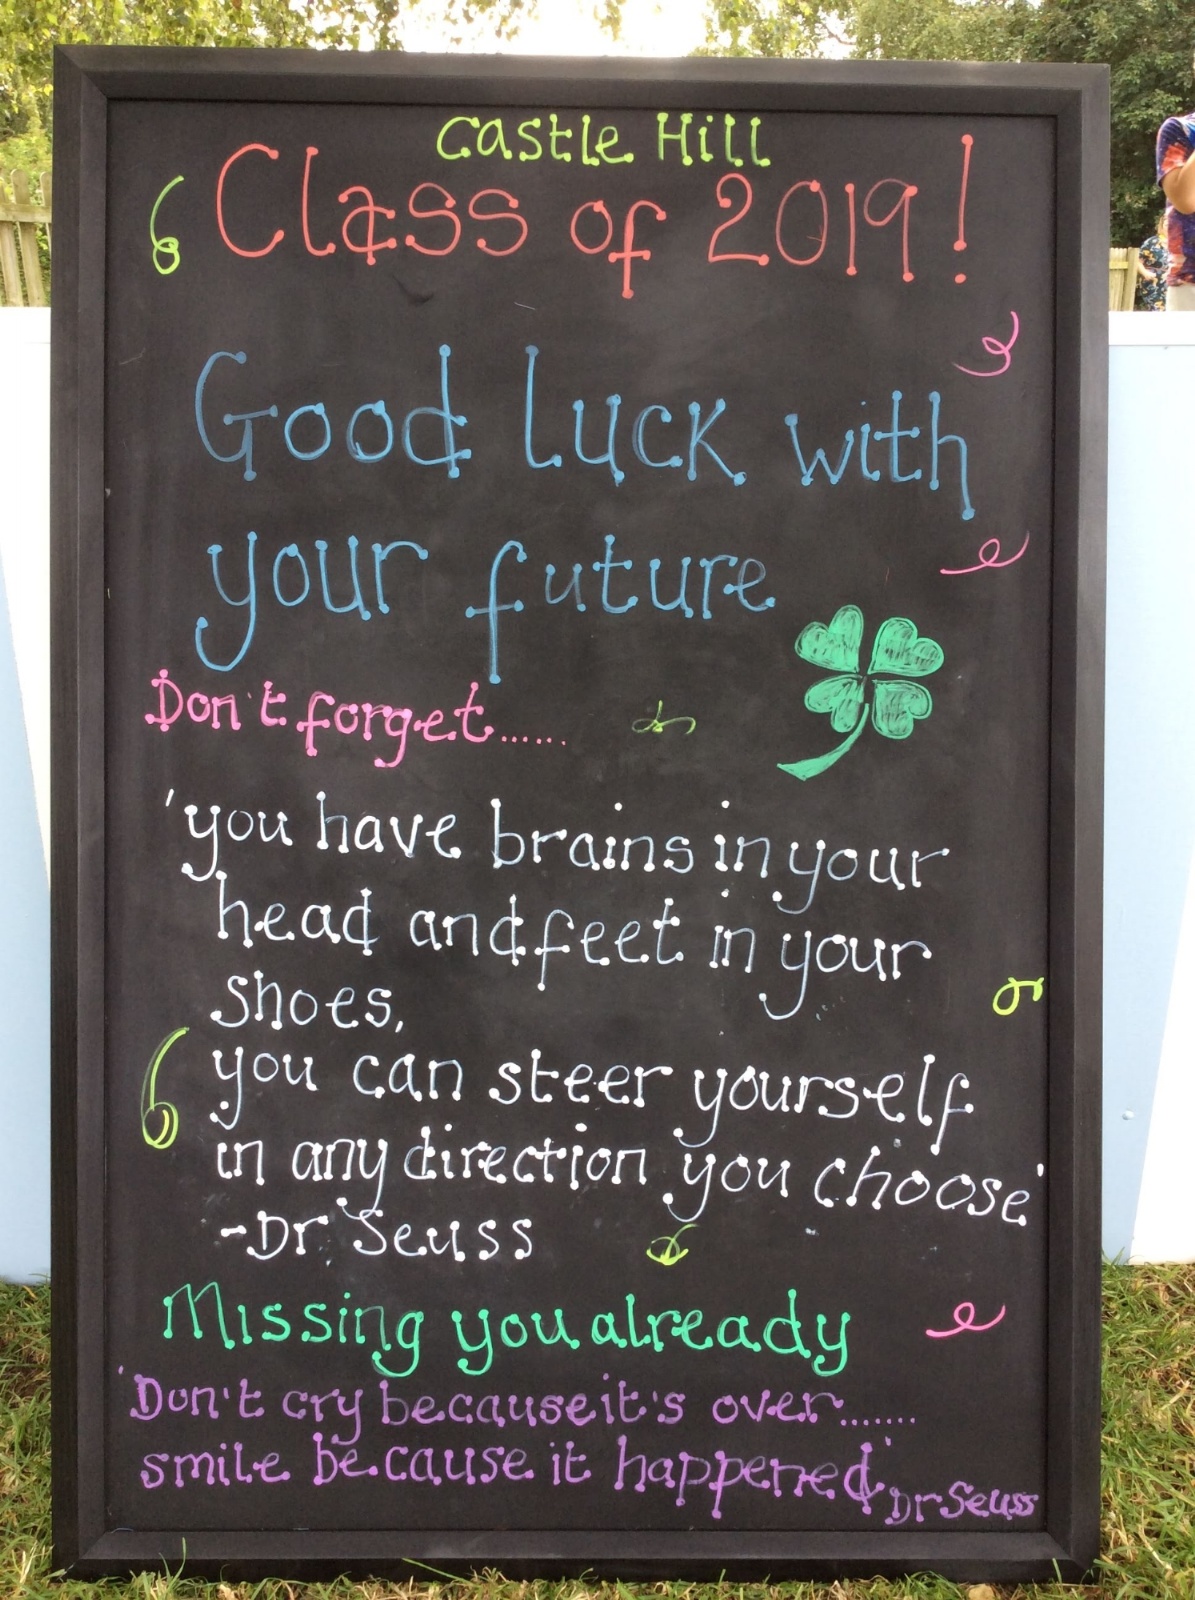 Castle Hill
Class of 2019!
Good luck with
your future
Don't forget......
'you have brains in your
head and feet in your
shoes,
you can steer yourself
in any direction you choose'
-Dr Seuss
Missing you already
'Don't cry because it's over.......
smile because it happened'
Dr Seuss